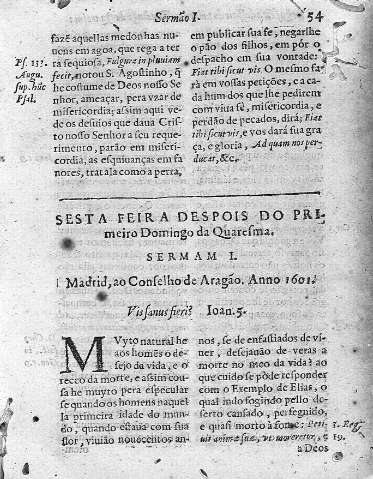 Sermão I.
54
fazẽ aquellas medonhas nu-
uens em agoa, que rega a ter
ra sequiosa, Fulgura in pluuiam
fecit, notou S. Agostinho, q̃
he costume de Deos nosso Se
nhor, ameaçar, pera vzar de
misericordia; assim aqui ve-
de os desuios que daua Chris
to nosso Senhor a seu reque-
rimento, parão em miseri-
cordia; as esquiuanças em fa
uores, trata la como a perra,
Ps. 133.
Augu.
sup. hũc
Psal.
em publicar sua fe, negarlhe
o pão dos filhos, em pòr o
despacho em sua vontade:
Fiat tibi sicut vis. O mesmo fa
rà em vossas petições, e a ca-
da hum dos que lhe pedirem
com viua fè, misericordia, e
perdão de pecados, dirá; Fiat
tibi sicut vis, e vos darà sua gra
ça, e gloria, Ad quam nos per-
ducat, &c.
SESTA FEIRA DESPOIS DO PRI-
meiro Domingo da Quaresma.
SERMAM I.
Madrid, ao Conselho de Aragão. Anno 1601.
Vis sanus fieri? Ioan. 5.
MVyto natural he
aos homẽs o de-
sejo da vida, e o
receo da morte, e assim cou-
sa he muyto pera especular
se quando os homens naquel
la primeira idade do mun-
do, quando estaua com sua
flor, viuião nouecentos an-
nos, se de enfastiados de vi-
uer, desejauão de veras a
morte no meo da vida? ao
que cuido se pòde responder
com o Exemplo de Elias, o
qual indo fogindo pello de-
serto cansado, perseguido,
e quasi morto à fome: Peti-
uit animæ suæ, vt moreretur, e
a Deos
3. Reg.
19.